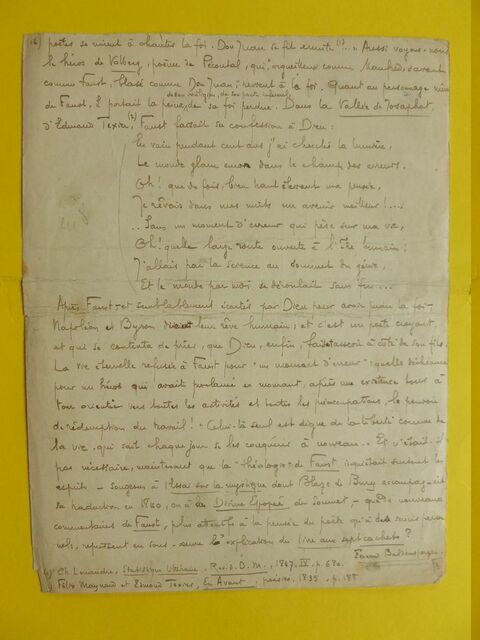 (16) poètes se mirent à chanter la foi. Don Juan se fit ermite (1)... Aussi voyons-nous
le héros de Valberg, poème de Pécontal, qui, "orgueilleux comme Manfred, savant
comme Faust, blasé comme Don Juan", revient à la foi. Quant au personnage même
de Faust, il portait la peine, de sa foi perdue. Dans la Vallée de Josaphat,
d'Edmond Texier (2), Faust faisait sa confession à Dieu :
En vain pendant cent ans j'ai cherché la lumière,
Le monde glane encor dans le champ des erreurs.
Oh ! que de fois, bien haut élevant ma pensée,
Je rêvais dans mes nuits un avenir meilleur !...
..Sans un moment d'erreur qui pèse sur ma vie,
Oh ! quelle large route ouverte à l'Être humain ;
J'allais par la science au sommet du génie,
Et le monde par moi se déroulait sans fin...
Après Faust, et semblablement écartés par Dieu pour avoir perdu la foi,
Napoléon et Byron disaient leur rêve humain ; et c'est un poète croyant,
et qui se contenta de prier, que Dieu, enfin, faisait asseoir à côté de son fils.
La vie éternelle refusée à Faust pour "un moment d'erreur" : quelle déchéance
pour un héros qui avait proclamé en mourant, après une existence
orientée vers toutes les activités et toutes les préoccupations, le pouvoir
de rédemption du travail ! "Celui-là seul est digne de la liberté comme de
la vie, qui sait chaque jour se les conquérir à nouveau.. Et n'était-il
pas nécessaire, maintenant que la "théologie" de Faust inquiétait surtout les
esprits - songeons à l'Essai sur la mystique dont Blaze de Bury accompagnait
sa traduction en 1840, ou à la Divine Épopée de Soumet, - que de nouveaux
commentaires de Faust, plus attentifs à la pensée du poète qu'à des soucis person-
nels, reprissent en sous-œuvre l'explication du livre aux sept cachets ?
Fernand Baldensperger
(1) Ch. Louandre, Statistique littéraire. R. des D. M., 1847, IV, p. 680.
(2) Félix Maynard et Edmond Texier, En Avant ; poésies, 1835, p. 188